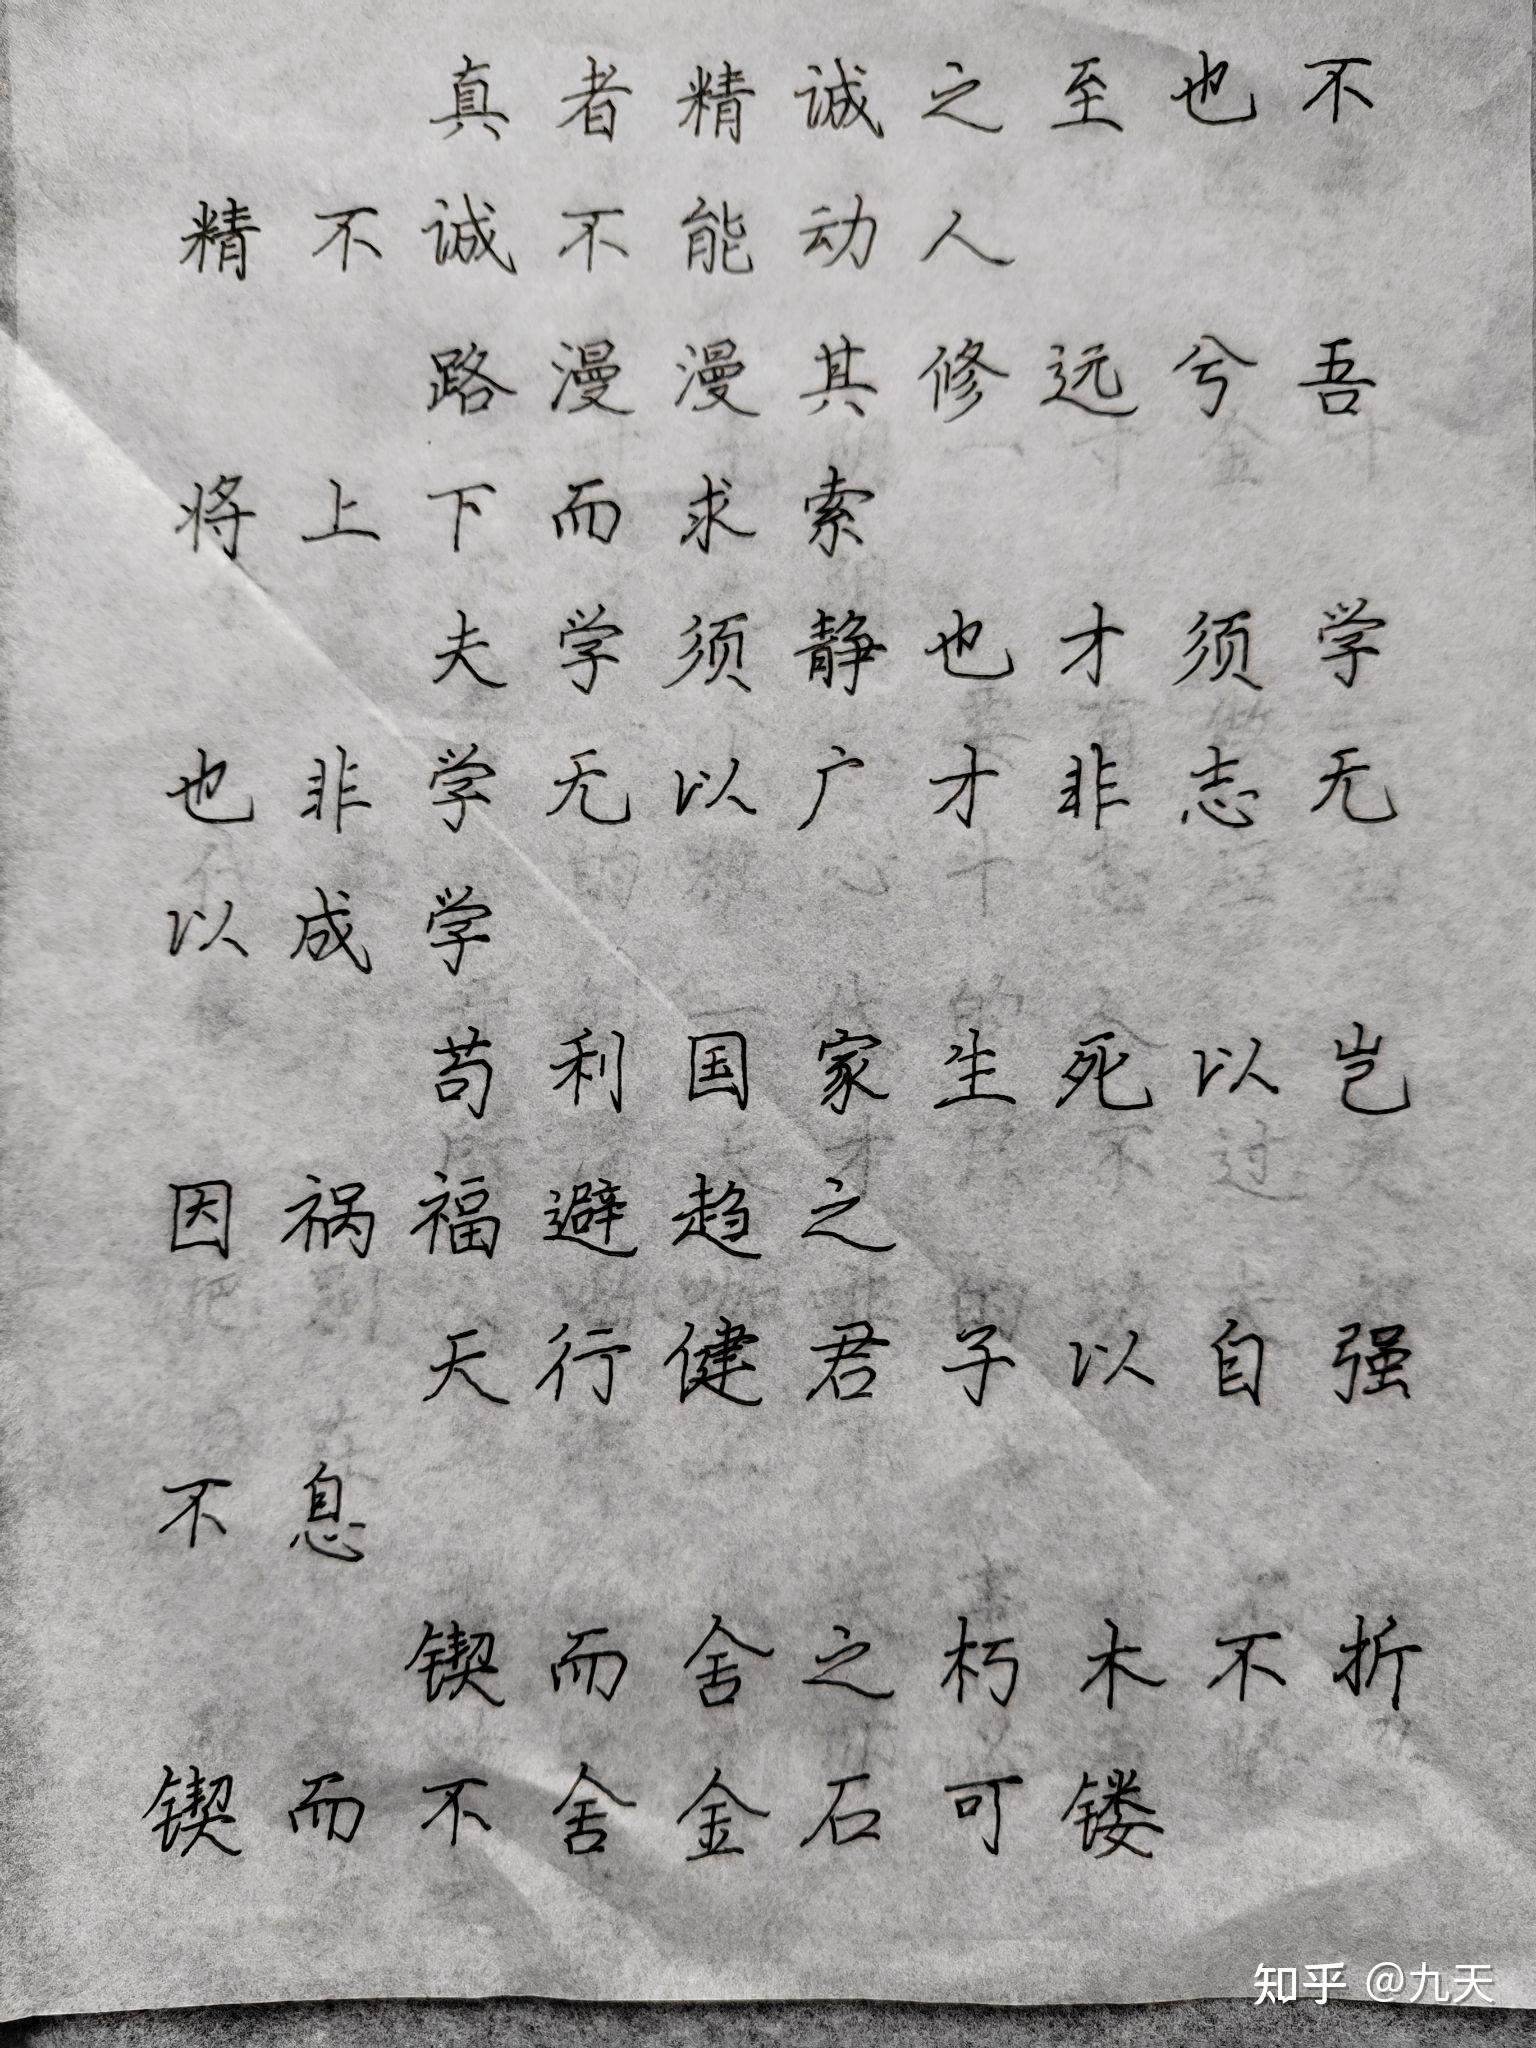 真者精诚之至也不
精不诚不能动人
路漫漫其修远兮吾
将上下而求索
夫学须静也才须学
也非学无以广才非志无
以成学
苟利国家生死以岂
因祸福避趋之
天行健君子以自强
不息
锲而舍之朽木不折
锲而不舍金石可镂
知乎 @九天